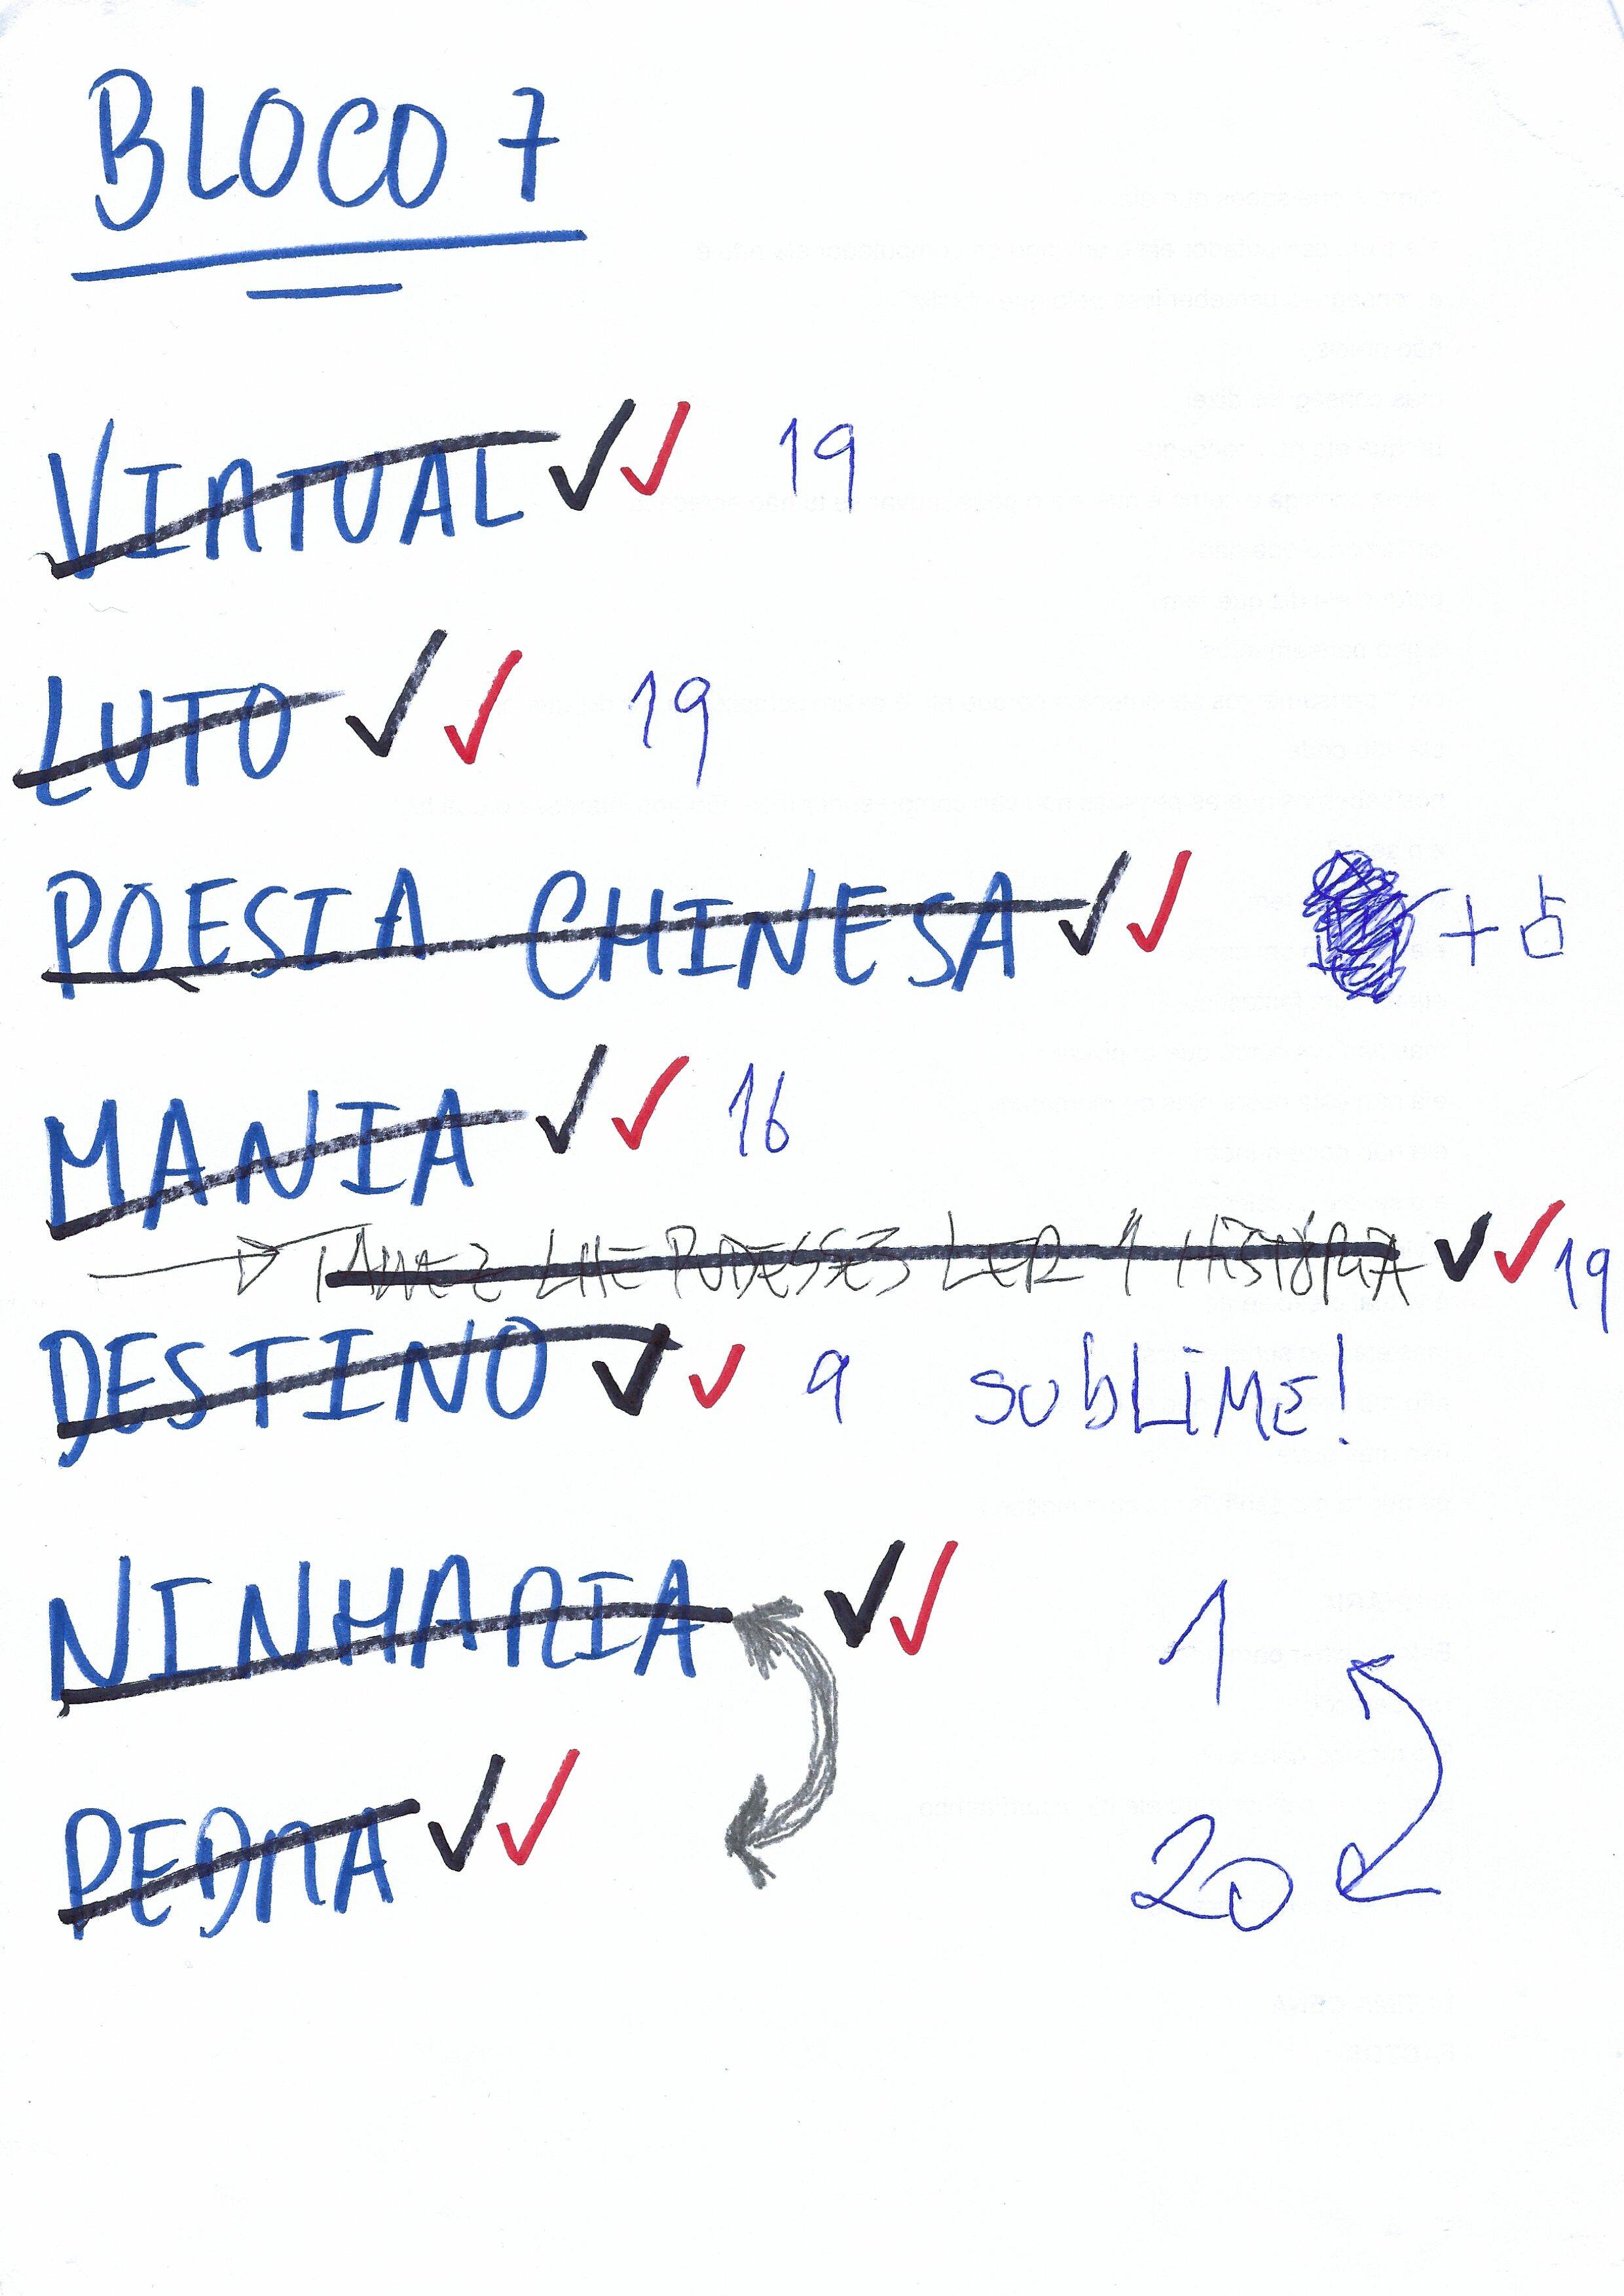 BLOCO 7
VIRTUAL ✓✓ 19
LUTO ✓✓ 19
POESIA CHINESA ✓✓ +
MANIA ✓✓ 16
→ TALVEZ LHE PUDESSES LER 1 HISTÓRIA ✓✓ 19
DESTINO ✓✓ 9 SUBLIME!
NINHARIA ✓✓ 1
PEDRA ✓✓ 20